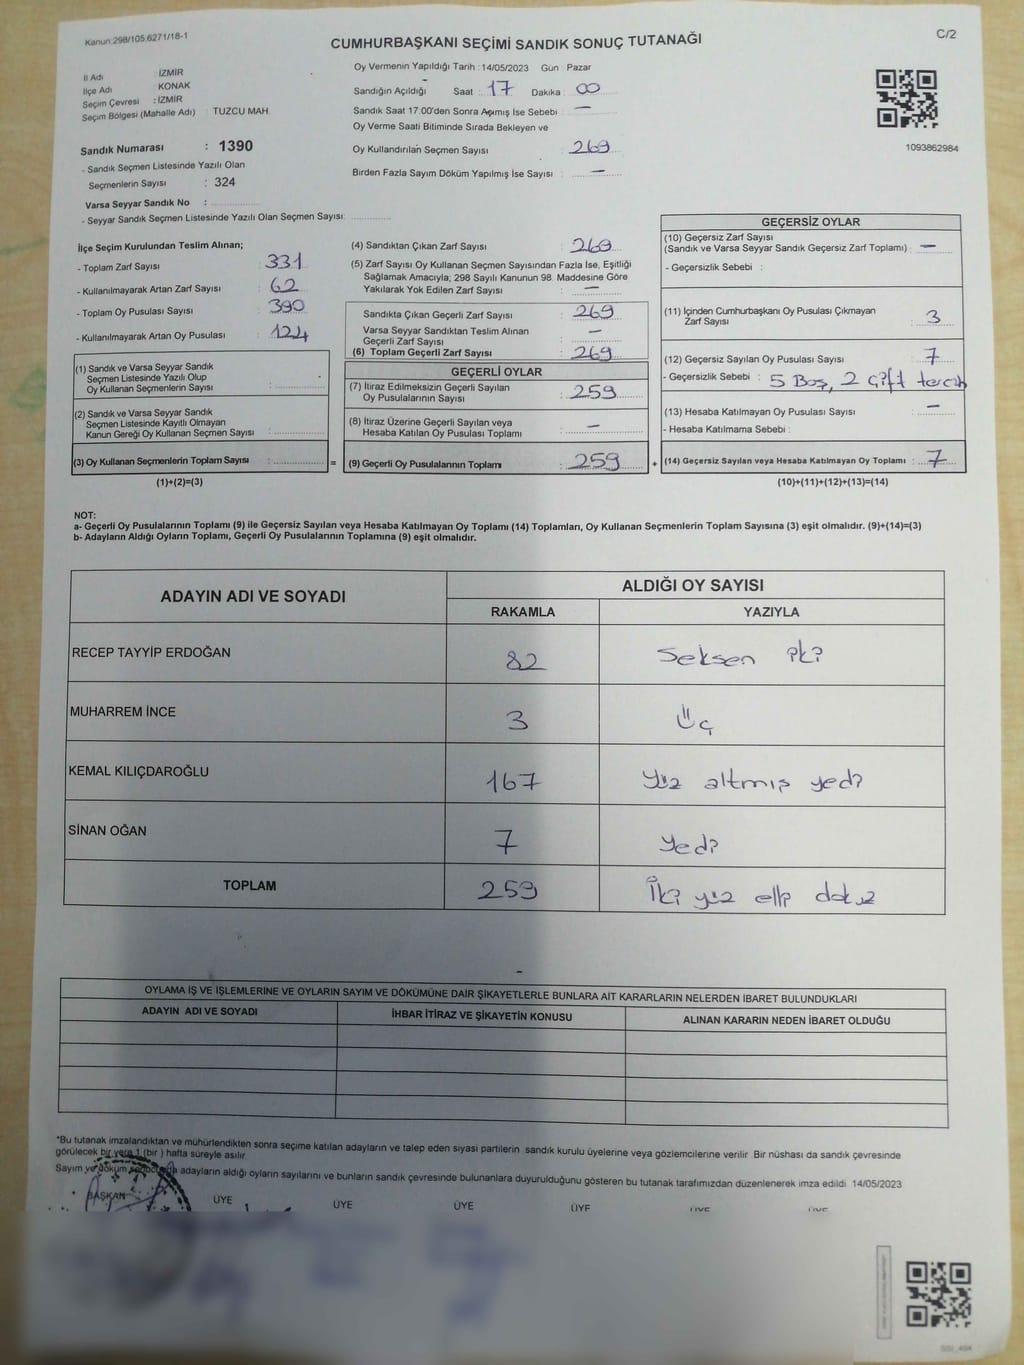 Kanun:298/105,6271/18-1
C/2
CUMHURBAŞKANI SEÇİMİ SANDIK SONUÇ TUTANAĞI
İl Adı : İZMİR
İlçe Adı : KONAK
Seçim Çevresi : İZMİR
Seçim Bölgesi (Mahalle Adı) : TUZCU MAH.
Sandık Numarası : 1390
- Sandık Seçmen Listesinde Yazılı Olan
Seçmenlerin Sayısı : 324
Varsa Seyyar Sandık No :
- Seyyar Sandık Seçmen Listesinde Yazılı Olan Seçmen Sayısı:
Oy Vermenin Yapıldığı Tarih :14/05/2023 Gün : Pazar
Sandığın Açıldığı Saat : 17 Dakika : 00
Sandık Saat 17.00'den Sonra Açımış İse Sebebi : —
Oy Verme Saati Bitiminde Sırada Bekleyen ve
Oy Kullandırılan Seçmen Sayısı : 269
Birden Fazla Sayım Döküm Yapılmış İse Sayısı : —
1093862984
İlçe Seçim Kurulundan Teslim Alınan;
- Toplam Zarf Sayısı : 331
- Kullanılmayarak Artan Zarf Sayısı : 62
- Toplam Oy Pusulası Sayısı : 390
- Kullanılmayarak Artan Oy Pusulası : 124
(1) Sandık ve Varsa Seyyar Sandık
Seçmen Listesinde Yazılı Olup
Oy Kullanan Seçmenlerin Sayısı :
(2) Sandık ve Varsa Seyyar Sandık
Seçmen Listesinde Kayıtlı Olmayan
Kanun Gereği Oy Kullanan Seçmen Sayısı :
(3) Oy Kullanan Seçmenlerin Toplam Sayısı : =
(1)+(2)=(3)
(4) Sandıktan Çıkan Zarf Sayısı : 269
(5) Zarf Sayısı Oy Kullanan Seçmen Sayısından Fazla İse, Eşitliği
Sağlamak Amacıyla; 298 Sayılı Kanunun 98. Maddesine Göre
Yakılarak Yok Edilen Zarf Sayısı : —
Sandıkta Çıkan Geçerli Zarf Sayısı : 269
Varsa Seyyar Sandıktan Teslim Alınan
Geçerli Zarf Sayısı : —
(6) Toplam Geçerli Zarf Sayısı : 269
GEÇERLİ OYLAR
(7) İtiraz Edilmeksizin Geçerli Sayılan
Oy Pusulalarının Sayısı : 259
(8) İtiraz Üzerine Geçerli Sayılan veya
Hesaba Katılan Oy Pusulası Toplamı : —
(9) Geçerli Oy Pusulalarının Toplamı : 259 +
GEÇERSİZ OYLAR
(10) Geçersiz Zarf Sayısı
(Sandık ve Varsa Seyyar Sandık Geçersiz Zarf Toplamı) : —
- Geçersizlik Sebebi :
(11) İçinden Cumhurbaşkanı Oy Pusulası Çıkmayan
Zarf Sayısı : 3
(12) Geçersiz Sayılan Oy Pusulası Sayısı : 7
- Geçersizlik Sebebi : 5 Boş, 2 çift tercih
(13) Hesaba Katılmayan Oy Pusulası Sayısı : —
- Hesaba Katılmama Sebebi :
(14) Geçersiz Sayılan veya Hesaba Katılmayan Oy Toplamı : 7
(10)+(11)+(12)+(13)=(14)
NOT:
a- Geçerli Oy Pusulalarının Toplamı (9) ile Geçersiz Sayılan veya Hesaba Katılmayan Oy Toplamı (14) Toplamları, Oy Kullanan Seçmenlerin Toplam Sayısına (3) eşit olmalıdır. (9)+(14)=(3)
b- Adayların Aldığı Oyların Toplamı, Geçerli Oy Pusulalarının Toplamına (9) eşit olmalıdır.
ADAYIN ADI VE SOYADI
ALDIĞI OY SAYISI
RAKAMLA YAZIYLA
RECEP TAYYİP ERDOĞAN 82 Seksen iki
MUHARREM İNCE 3 Üç
KEMAL KILIÇDAROĞLU 167 Yüz altmış yedi
SİNAN OĞAN 7 Yedi
TOPLAM 259 İki yüz elli dokuz
OYLAMA İŞ VE İŞLEMLERİNE VE OYLARIN SAYIM VE DÖKÜMÜNE DAİR ŞİKAYETLERLE BUNLARA AİT KARARLARIN NELERDEN İBARET BULUNDUKLARI
ADAYIN ADI VE SOYADI İHBAR İTİRAZ VE ŞİKAYETİN KONUSU ALINAN KARARIN NEDEN İBARET OLDUĞU
*Bu tutanak imzalandıktan ve mühürlendikten sonra seçime katılan adayların ve talep eden siyasi partilerin sandık kurulu üyelerine veya gözlemcilerine verilir. Bir nüshası da sandık çevresinde
görülecek bir yere 1 (bir ) hafta süreyle asılır.
Sayım ve döküm adayların aldığı oyların sayılarını ve bunların sandık çevresinde bulunanlara duyurulduğunu gösteren bu tutanak tarafımızdan düzenlenerek imza edildi. 14/05/2023
BAŞKAN ÜYE ÜYE ÜYE ÜYE ÜYE ÜYE